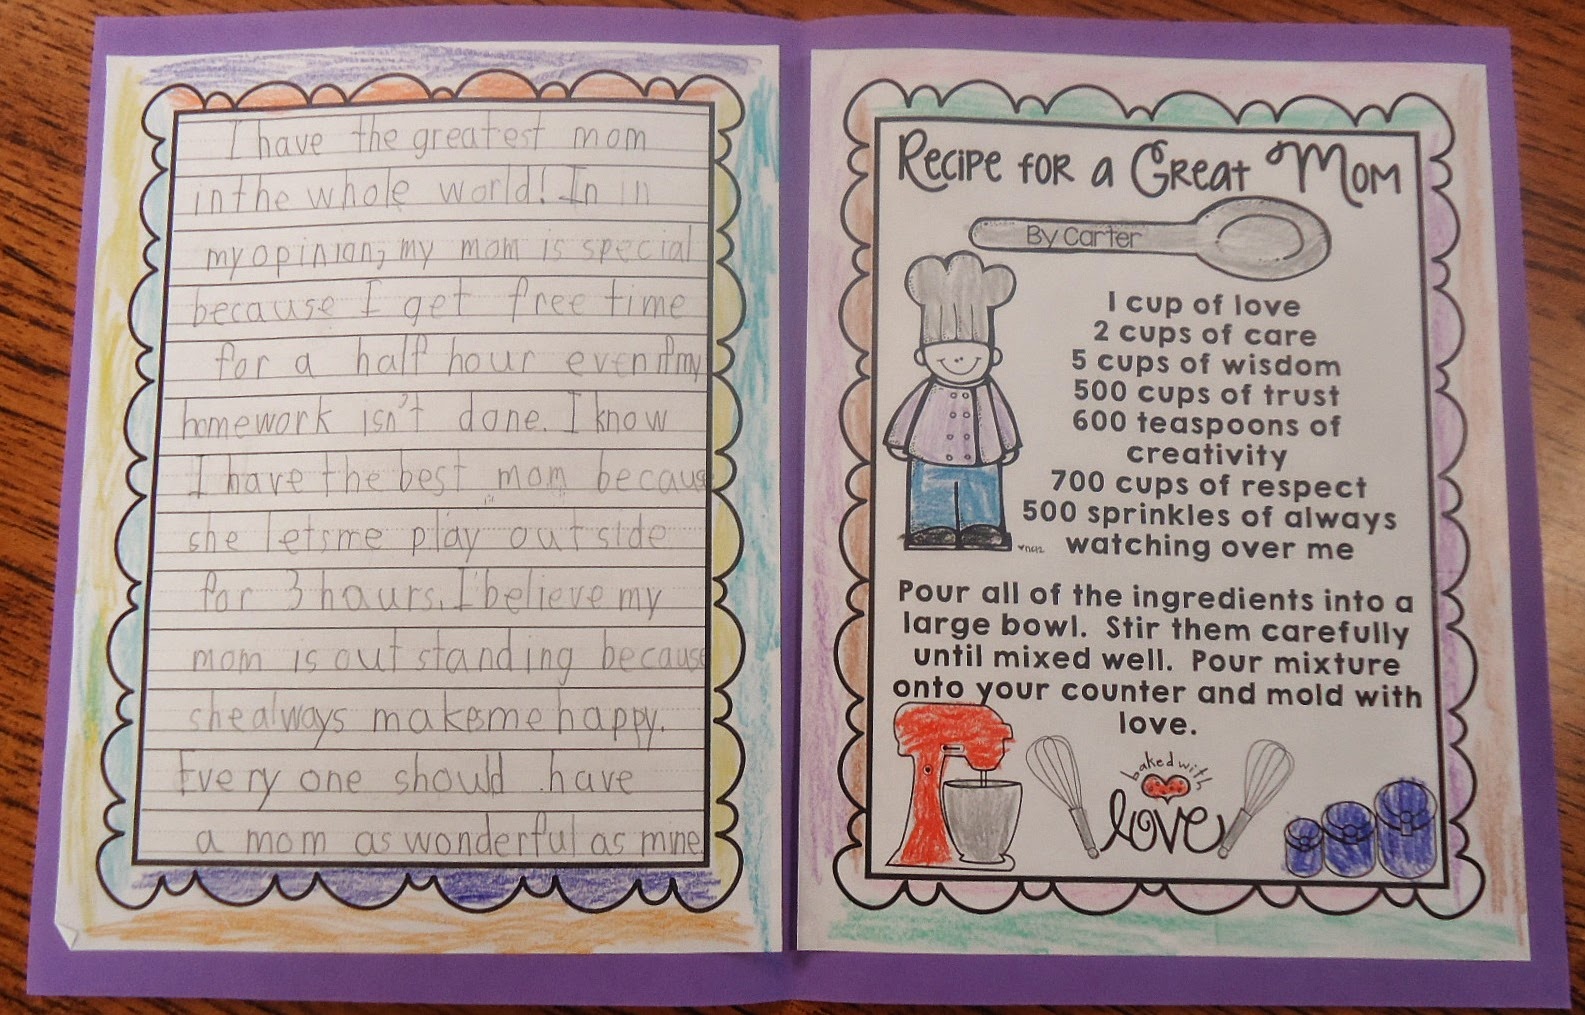 I have the greatest mom
in the whole world! In in
my opinion, my mom is special
because I get free time
for a half hour even if my
homework isn't done. I know
I have the best mom because
she lets me play outside
for 3 hours. I believe my
mom is outstanding because
she always makes me happy.
Every one should have
a mom as wonderful as mine
Recipe for a Great Mom
By Carter
1 cup of love
2 cups of care
5 cups of wisdom
500 cups of trust
600 teaspoons of
creativity
700 cups of respect
500 sprinkles of always
watching over me
Pour all of the ingredients into a
large bowl. Stir them carefully
until mixed well. Pour mixture
onto your counter and mold with
love.
baked with
love